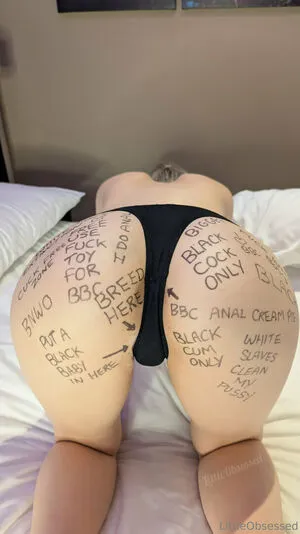 FREE
USE
FUCK
TOY
FOR
BBC
I DO ANAL
CUCK
ZONE
BNWO
BREED
HERE
PUT A
BLACK
BABY
IN HERE
BLACK
COCK
ONLY
BBC ANAL CREAM PIE
BLACK
CUM
ONLY
WHITE
SLAVES
CLEAN
MY
PUSSY
LittleObsessed